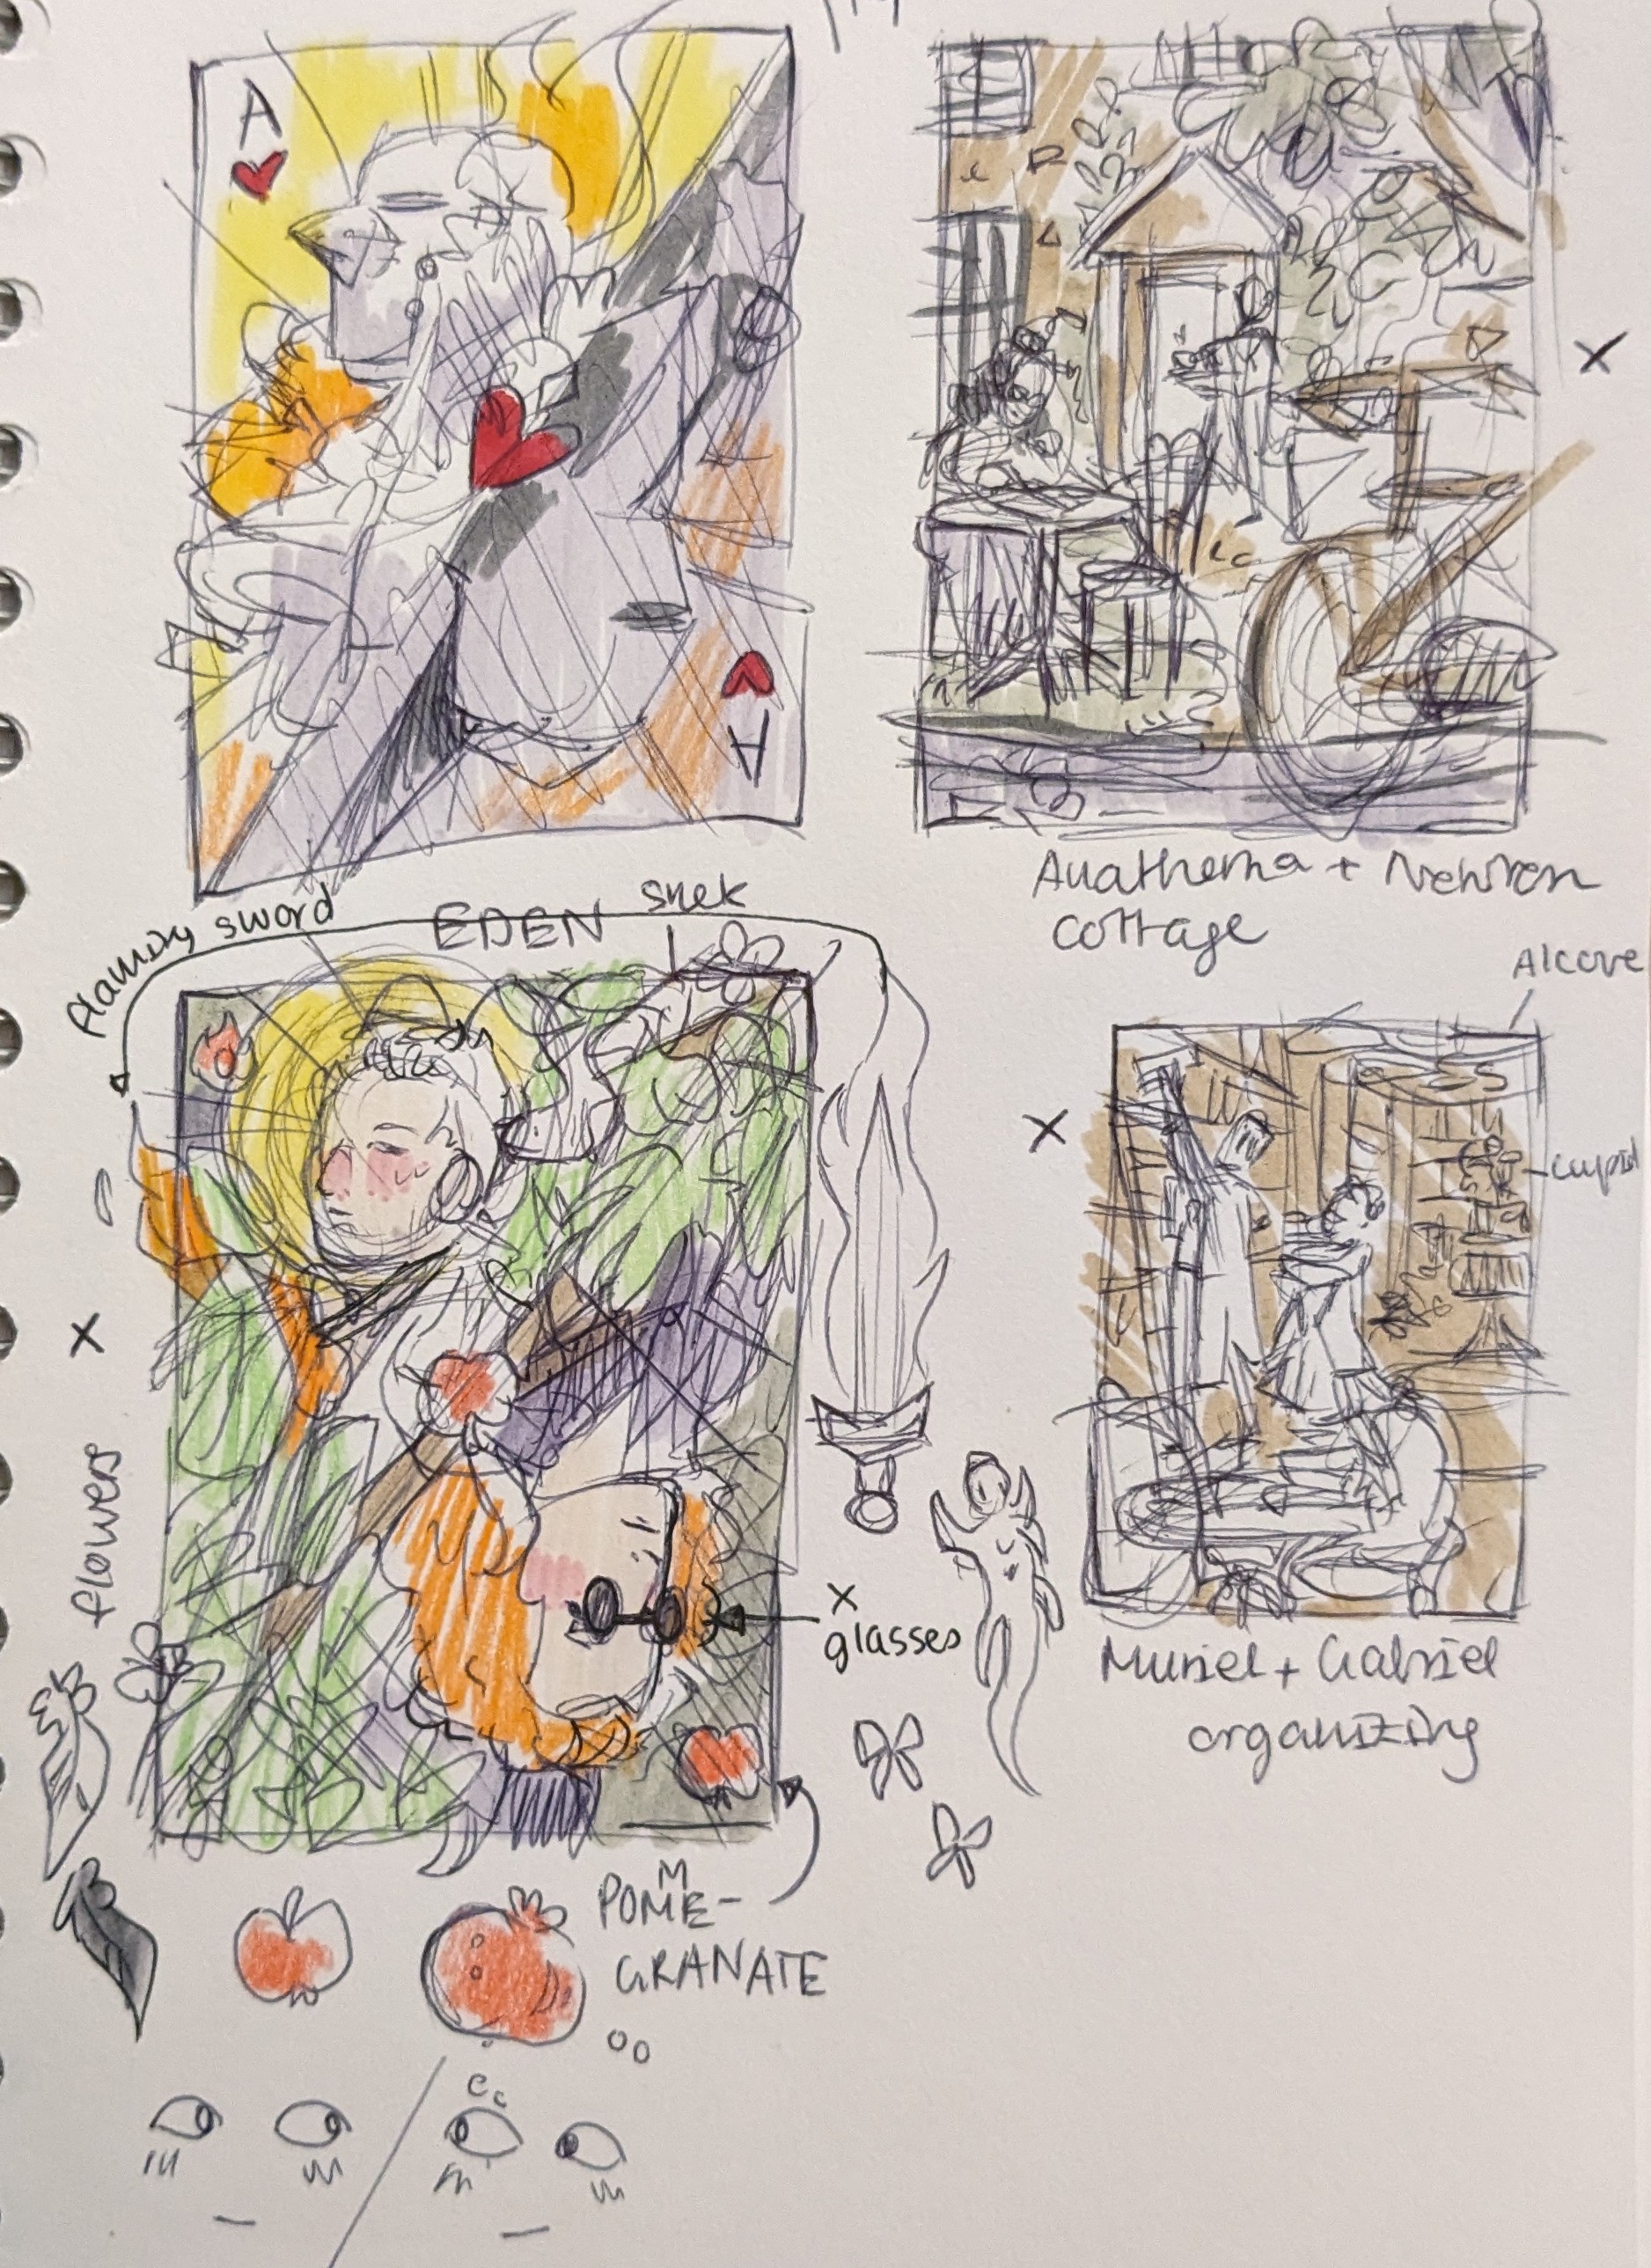 A
A
Anathema + Newton
cottage
flaming sword
EDEN
snek
Alcove
cupid
flowers
x
glasses
Muriel + Gabriel
organizing
M
POME-
GRANATE